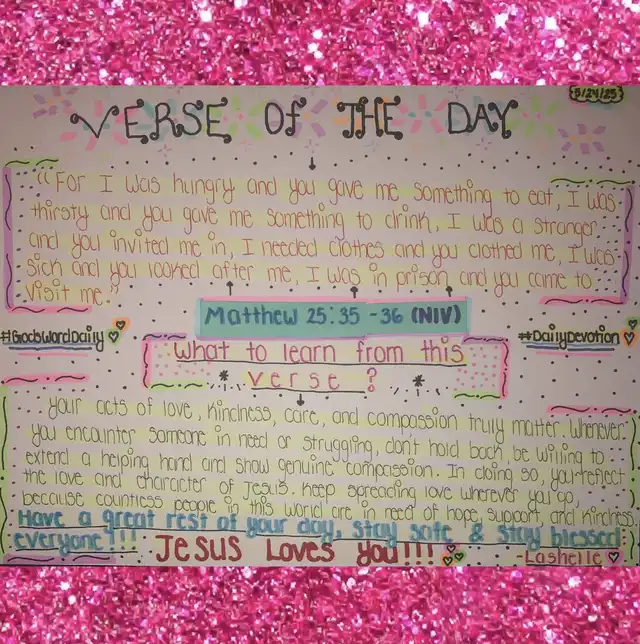 5/24/25
VERSE OF THE DAY
"For I was hungry and you gave me something to eat, I was
thirsty and you gave me something to drink, I was a stranger
and you invited me in, I needed clothes and you clothed me, I was
sick and you looked after me, I was in prison and you came to
visit me."
Matthew 25:35-36 (NIV)
#GodsWordDaily
#DailyDevotion
What to learn from this
verse?
Your acts of love, kindness, care, and compassion truly matter. Whenever
you encounter someone in need or struggling, don't hold back, be willing to
extend a helping hand and show genuine compassion. In doing so, you reflect
the love and character of Jesus. Keep spreading love wherever you go,
because countless people in this world are in need of hope, support, and kindness.
Have a great rest of your day, stay safe & stay blessed
everyone!!! Jesus Loves You!!!
-Lashelle